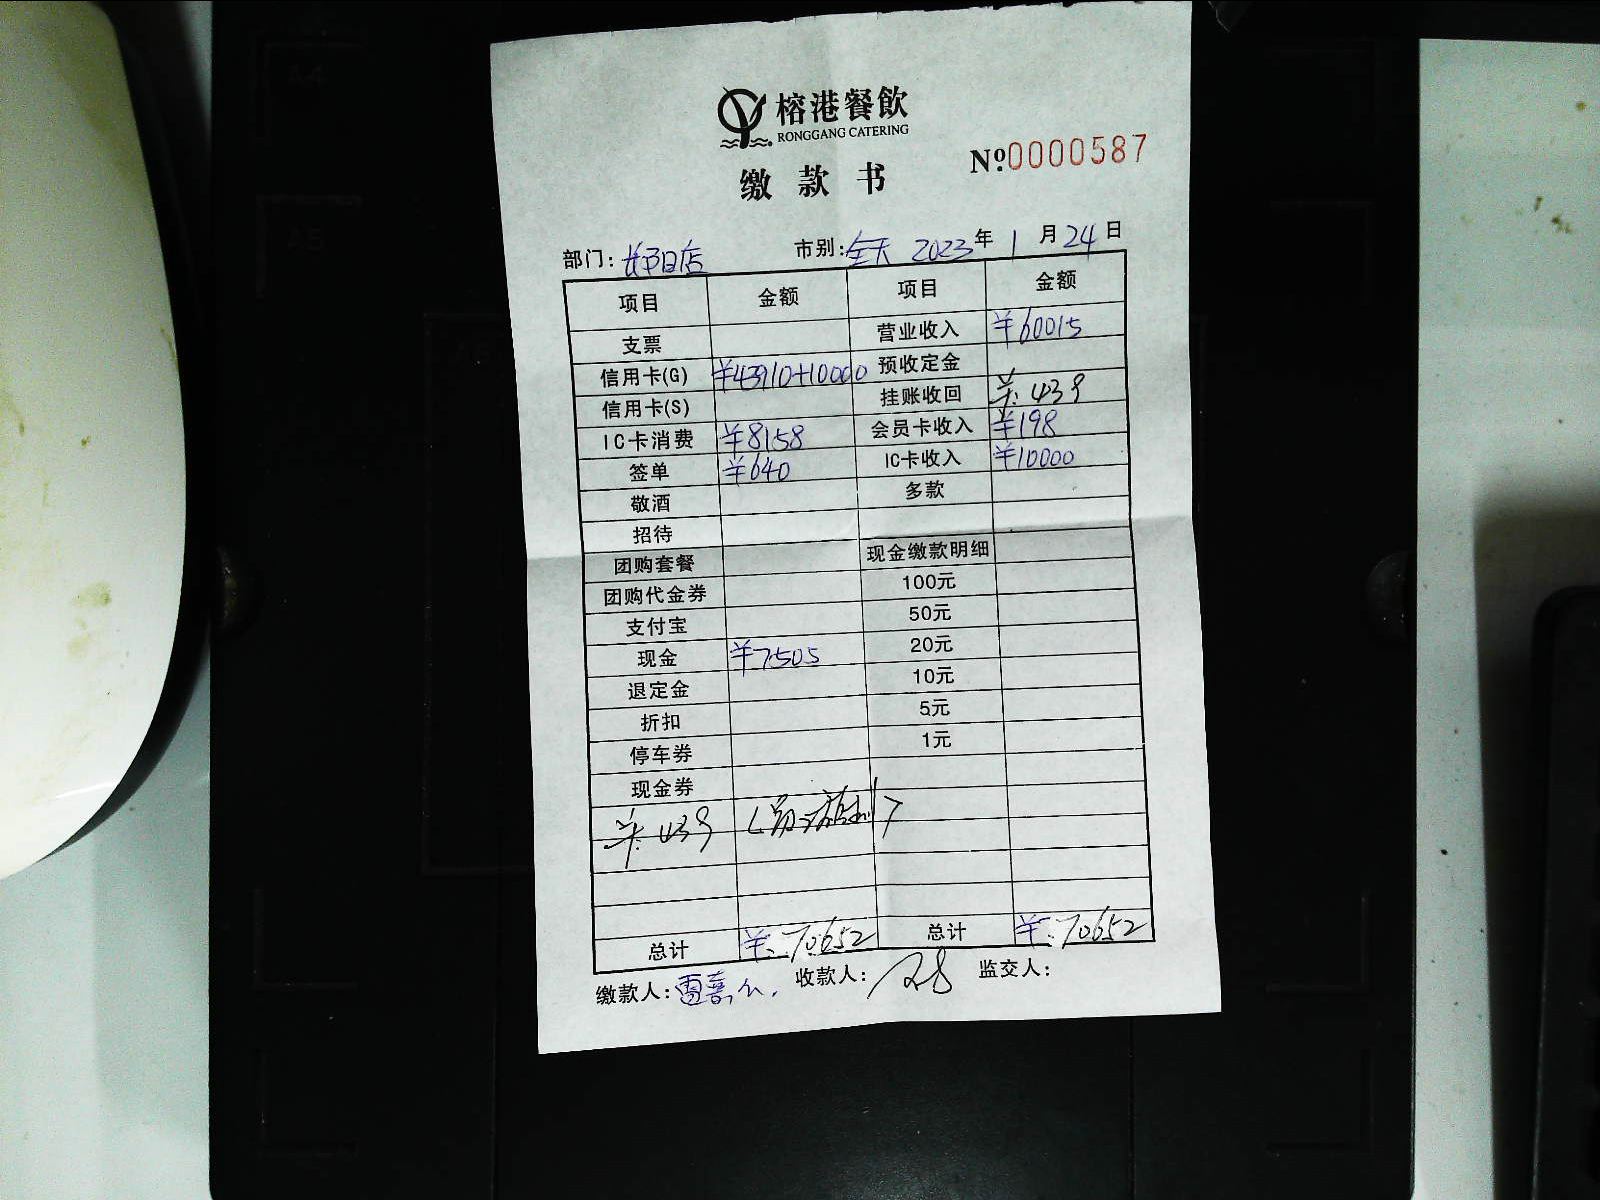 榕港餐飲
RONGGANG CATERING
缴款书
№0000587
部门: 店 市别: 全天 2023年 1月 24日
项目 金额 项目 金额
支票 营业收入 ¥60015
信用卡(G) ¥43910+10000 预收定金
信用卡(S) 挂账收回 ¥:439
IC卡消费 ¥8158 会员卡收入 ¥198
签单 ¥640 IC卡收入 ¥10000
敬酒 多款
招待
团购套餐 现金缴款明细
团购代金券 100元
支付宝 50元
现金 ¥7505 20元
退定金 10元
折扣 5元
停车券 1元
现金券
¥:439
总计 ¥:70652 总计 ¥:70652
缴款人: 雷 收款人: 监交人: